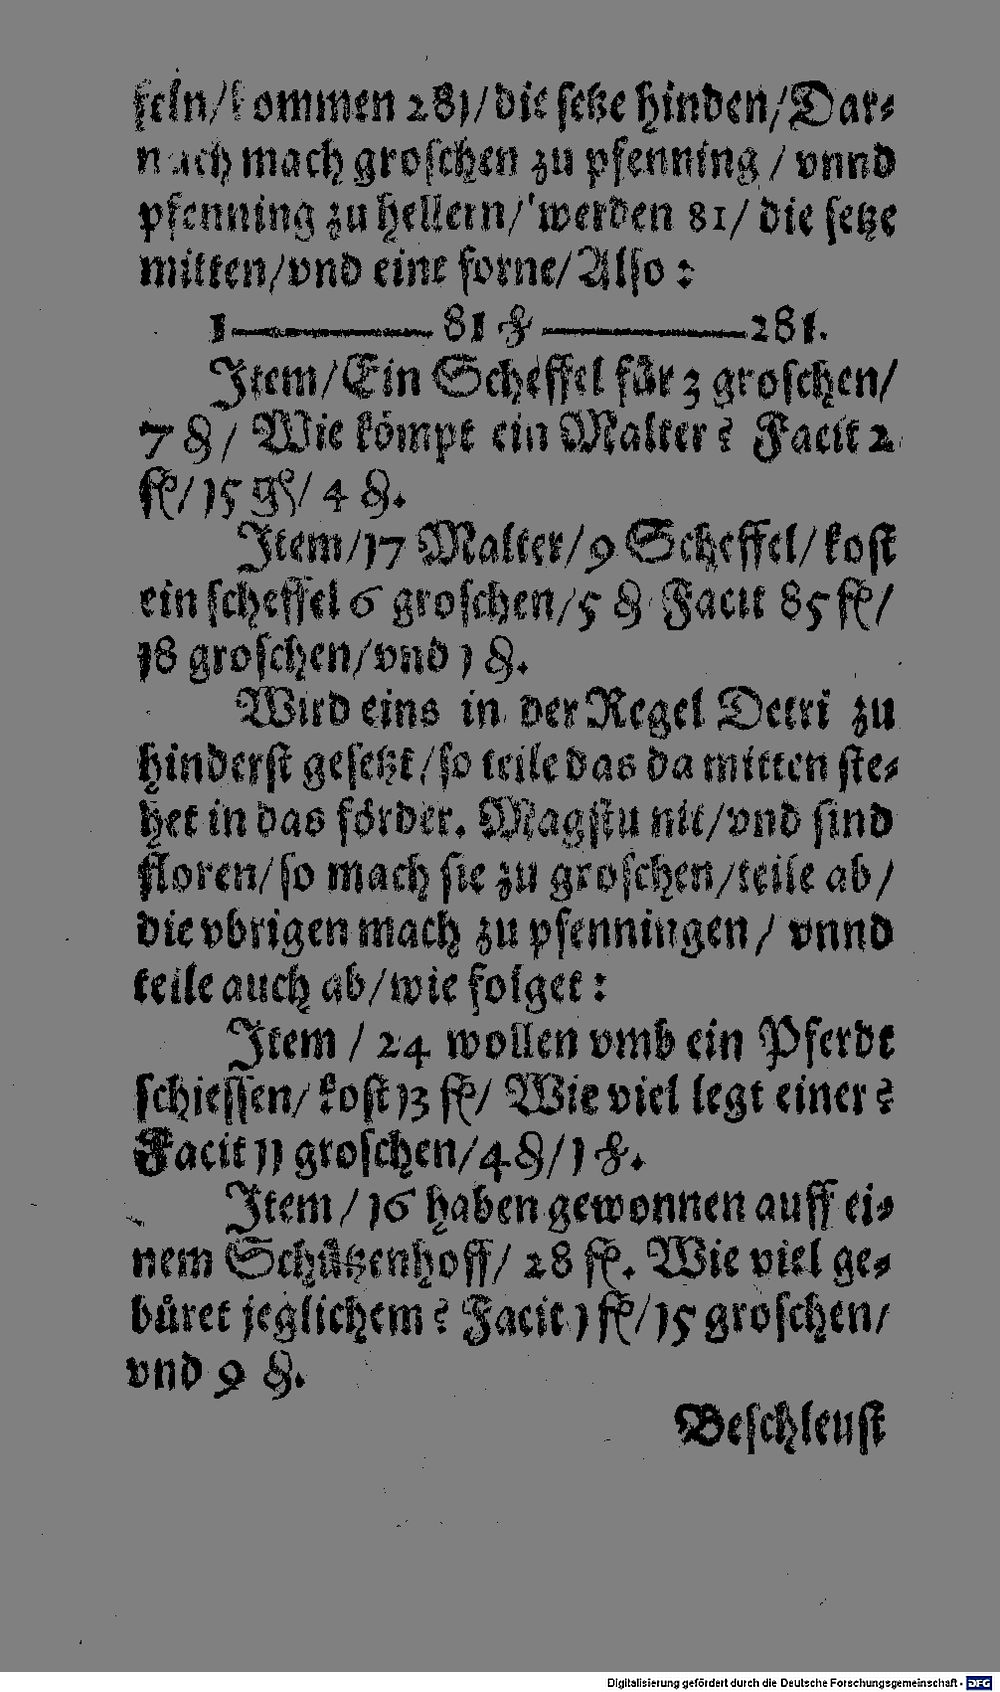 feln/kommen 281/die ſetze hinden/Dar⸗
nach mach groſchen zu pfenning / vnnd
pfenning zu hellern/ werden 81/ die ſetze
mitten/vnd eine forne/ Alſo :
1 —— 81 ₰ —— 281.
Item/Ein Scheffel für 3 groſchen/
7 ₰/ Wie kömpt ein Malter? Facit 2
fl/ 15 gſ/ 4 ₰.
Item/17 Malter/9 Scheffel/ koſt
ein ſcheffel 6 groſchen/5 ₰ Facit 85 fl/
18 groſchen/vnd 1 ₰.
Wird eins in der Regel Detri zu
hinderſt geſetzt/ſo teile das da mitten ſte⸗
het in das förder. Magſtu nit/vnd ſind
floren/ſo mach ſie zu groſchen/teile ab/
die vbrigen mach zu pfenningen/ vnnd
teile auch ab/wie folget :
Item / 24 wollen vmb ein Pferdt
ſchieſſen/ koſt 13 fl/ Wie viel legt einer?
Facit 11 groſchen/4 ₰/1 ₰.
Item / 16 haben gewonnen auff ei⸗
nem Schützenhoff/ 28 fl. Wie viel ge⸗
bůret jeglichem? Facit 1 fl/15 groſchen/
vnd 9 ₰.
Beſchleuſt
Digitalisierung gefördert durch die Deutsche Forschungsgemeinschaft - DFG